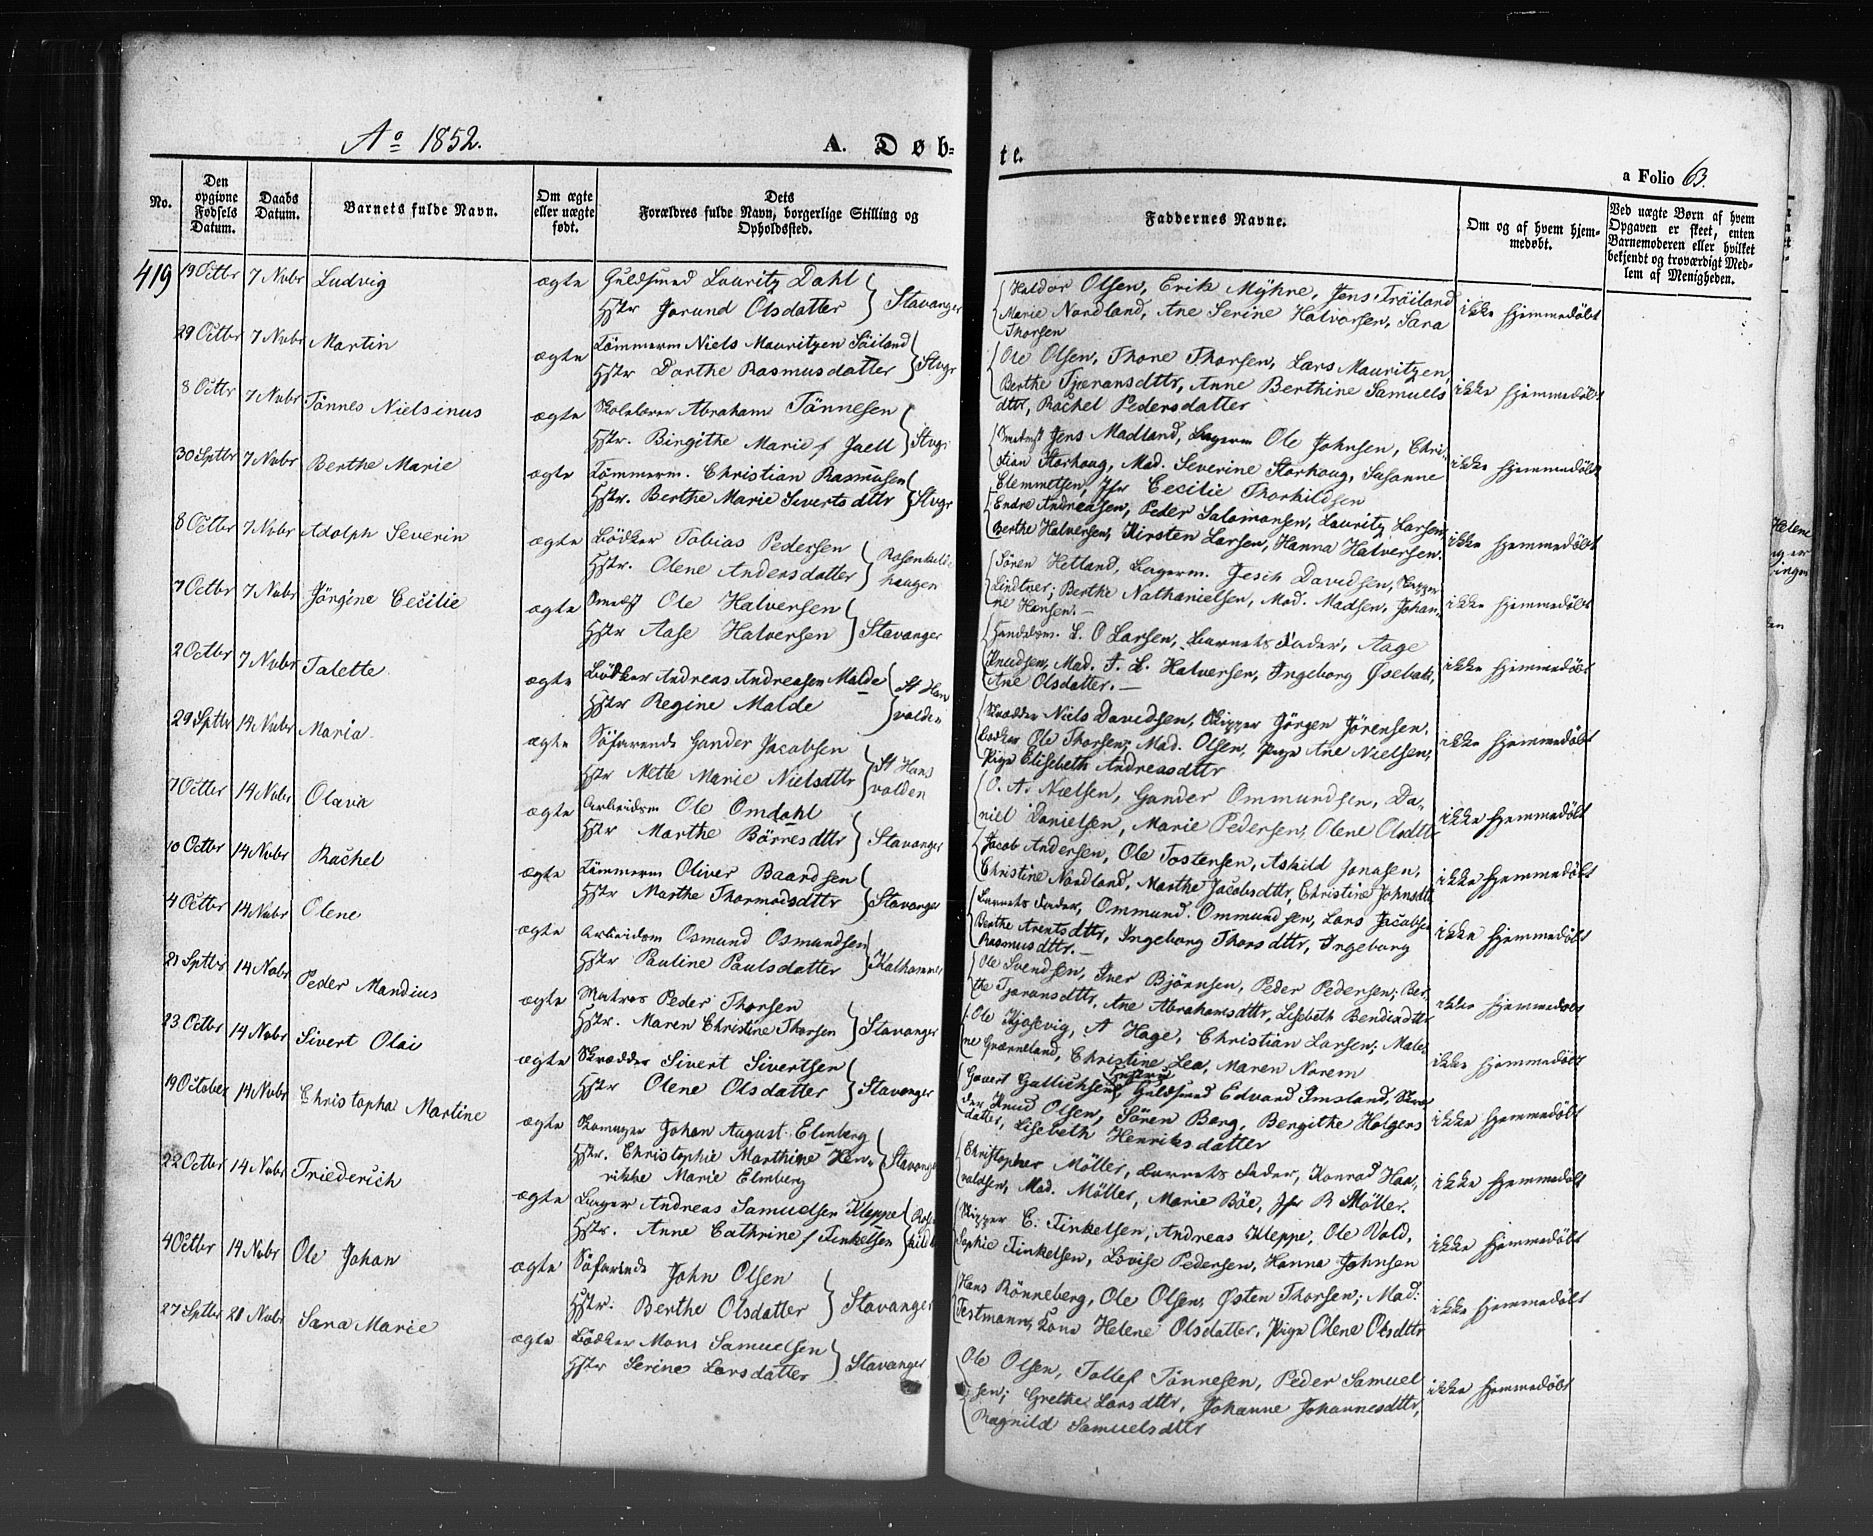 Aº 1852.
A. Døb=
te.
a Folio 63.
No.
Den opgivne Fødsels Datum.
Daabs Datum.
Barnets fulde Navn.
Om ægte eller uægte født.
Dets Forældres fulde Navn, borgerlige Stilling og Opholdssted.
Faddernes Navne.
Om og af hvem hjemmedøbt.
Ved uægte Børn af hvem Opgaven er skeet, enten Barnemoderen eller hvilket bekjendt og troværdigt Medlem af Menigheden.
419 19 Octbr 7 Nvbr Ludvig ægte Guldsmed Lauritz Dahl
Hstr Jorund Olsdatter } Stavanger
{ Haldor Olsen, Erik Myhre, Jens Tröiland
Marie Nordland, Ane Serine Halvorsen, Sara
Thorsen
ikke hjemmedöbt
29 Octbr 7 Nvbr Martin ægte Tömmerm Niels Mauritzen Söiland
Hstr Dorthe Rasmusdatter } Stvgr
{ Ole Olsen, Thore Thorsen, Lars Mauritzen,
Berthe Tjøransdttr, Anne Berthine Samuels
dttr, Rachel Pedersdatter
ikke hjemmedöbt
8 Octbr 7 Nvbr Tönnes Nielsinus ægte Skolelærer Abraham Tönnesen
Hstr. Birgithe Marie f Jaell } Stvgr
{ Jens Madland, Bagerm Ole Johnsen, Chri-
stian Storhoug, Mad. Severine Storhoug, Susanne
Clemmetsen, Jfr Cecilie Thorkildsen
ikke hjemmedöbt
30 Sptbr 7 Nvbr Berthe Marie ægte Tömmerm. Christian Rasmusen
Hstr. Berthe Marie Sivertsdttr } Stvgr
{ Endre Andreasen, Peder Salomonsen, Lauritz Larsen,
Berthe Halversen, Kirsten Larsen, Hanna Halversen.
ikke hjemmedöbt
8 Octbr 7 Nvbr Adolph Severin ægte Bödker Tobias Pedersen
Hstr. Olene Andersdatter } Rosenkilde
haugen
{ Sören Hetland, Bagerm. Jesch Davidsen, Skipper
Lindtner; Berthe Nathanielsen, Mad. Madsen, Johan-
ne Hansen. —
ikke hjemmedöbt
7 Octbr 7 Nvbr Jörgine Cecilie ægte Ole Halversen
Hstr Aase Halversen } Stavanger
{ Handelsm. L. O Larsen, Barnets Fader, Aage
Knudsen, Mad. T. L. Halversen, Ingeborg Øsebak,
Ane Olsdatter. —
ikke hjemmedöbt
2 Octbr 7 Nvbr Talette ægte Bödker Andreas Andreasen Malde
Hstr Regine Malde } St Han
volden
{ Skrædder Niels Davidsen, Skipper Jörgen Jörensen,
Bødker Ole Thorsen; Mad. Olsen, Pige Ane Nielsen,
Pige Elisebeth Andreasdttr
ikke hjemmedöbt
29 Sptbr 14 Nvbr Maria ægte Söfarende Gander Jacobsen
Hstr Mette Marie Nielsdttr } St Hans
volden
{ O. A. Nielsen, Gander Ommundsen, Da-
niel Danielsen, Marie Pedersen, Olene Olsdttr
ikke hjemmedöbt
7 Octbr 14 Nvbr Olava ægte Arbeidsm Ole Omdahl
Hstr Marthe Börresdttr } Stavanger
{ Jacob Andersen, Ole Tostensen, Askild Jonasen,
Christine Nordland, Marthe Jacobsdttr, Christine Johnsdttr
ikke hjemmedöbt
10 Octbr 14 Nvbr Rachel ægte Tömmerm Oliver Baardsen
Hstr Marthe Thormodsdttr } Stavanger
{ Barnets Fader, Ommund Ommundsen, Lars Jacobsen
Berthe Arentsdttr, Ingeborg Thorsdttr, Ingeborg
Rasmusdttr. —
ikke hjemmedöbt
4 Octbr 14 Nvbr Olene ægte Arbeidsm Osmund Osmundsen
Hstr Pauline Paulsdatter }
{ Ole Svendsen, Iver Björnsen, Peder Pedersen; Ber-
the Tjøransdttr, Ane Abrahamsdttr, Lisebeth Bendixdttr
ikke hjemmedöbt
21 Sptbr 14 Nvbr Peder Mandius ægte Matros Peder Thorsen
Hstr. Maren Christine Thorsen } Stavanger
{ Ole Kjosevig, A Hage, Christian Larsen; Male-
ne Grønneland, Christine Lea, Maren Norem
ikke hjemmedöbt
23 Octbr 14 Nvbr Sivert Olai ægte Skrædder Sivert Sivertsen
Hstr Olene Olsdatter } Stavanger
{ Govert Gullichsen, Guldsmed Edvard Imsland, Skræd
der Knud Olsen, Sören Berg, Bergithe Holgers
datter, Lisebeth Henriksdatter
ikke hjemmedöbt
19 October 14 Nvbr Christopha Martine ægte Skomager Johan August Elmberg
Hstr. Christophie Marthine Hen-
rikke Marie Elmberg } Stavanger
{ Christopher Möller, Barnets Fader, Konrad Haa-
valdsen, Mad. Möller, Marie Böe, Jfr R Möller.
ikke hjemmedöbt
22 Octbr 14 Nvbr Friederich ægte Bager Andreas Samuelsen Kleppe
Hstr. Anne Cathrine f Finkelsen
{ Skipper C. Finkelsen, Andreas Kleppe, Ole Vold,
Sophie Finkelsen, Lovise Pedersen, Hanna Johnsen
ikke hjemmedöbt
4 Octbr 14 Nvbr Ole Johan ægte Söfarende John Olsen
Hstr. Berthe Olsdatter } Stavanger
{ Hans Rönneberg, Ole Olsen, Østen Thorsen; Mad:
Testmann, Kone Helene Olsdatter, Pige Olene Olsdttr
ikke hjemmedöbt
27 Sptbr 28 Nvbr Sara Marie ægte Bödker Mons Samuelsen
Hstr Serine Larsdatter } Stavanger
{ Ole Olsen, Tollef Tönnesen, Peder Samuel
sen; Grethe Larsdttr, Johanne Johannesdttr,
Ragnild Samuelsdttr
ikke hjemmedöbt